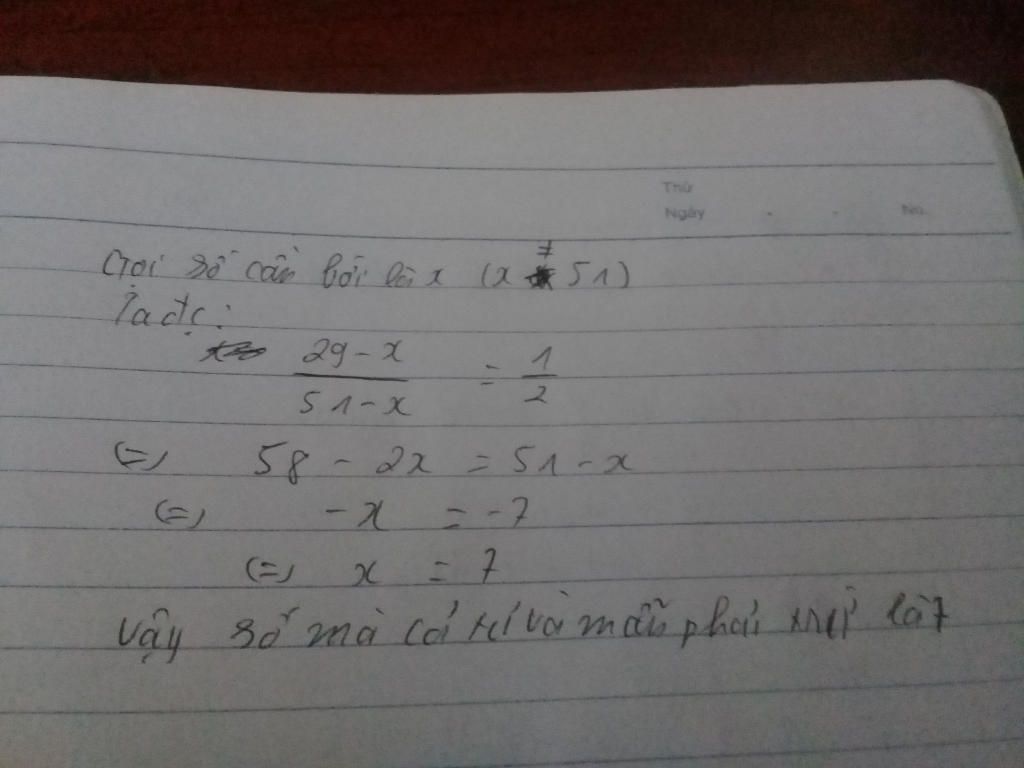 Thứ
Ngày No.
Gọi số cần bới là x (x ≠ 51)
Ta đc:
29 - x / 51 - x = 1 / 2
(=) 58 - 2x = 51 - x
(=) - x = - 7
(=) x = 7
Vậy số mà cả tử và mẫu phải trừ là 7